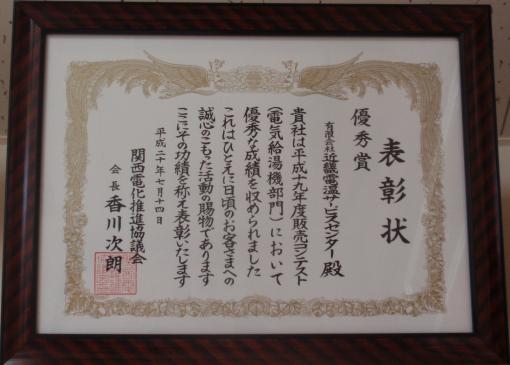 表彰状
優秀賞
有限会社近畿電温サービスセンター殿
貴社は平成十九年度販売コンテスト
(電気給湯機部門)において
優秀な成績を収められました
これはひとえに日頃のお客さまへの
誠心のこもった活動の賜物であります
ここにその功績を称え表彰いたします
平成二十年七月十四日
関西電化推進協議会
会長 香川次朗